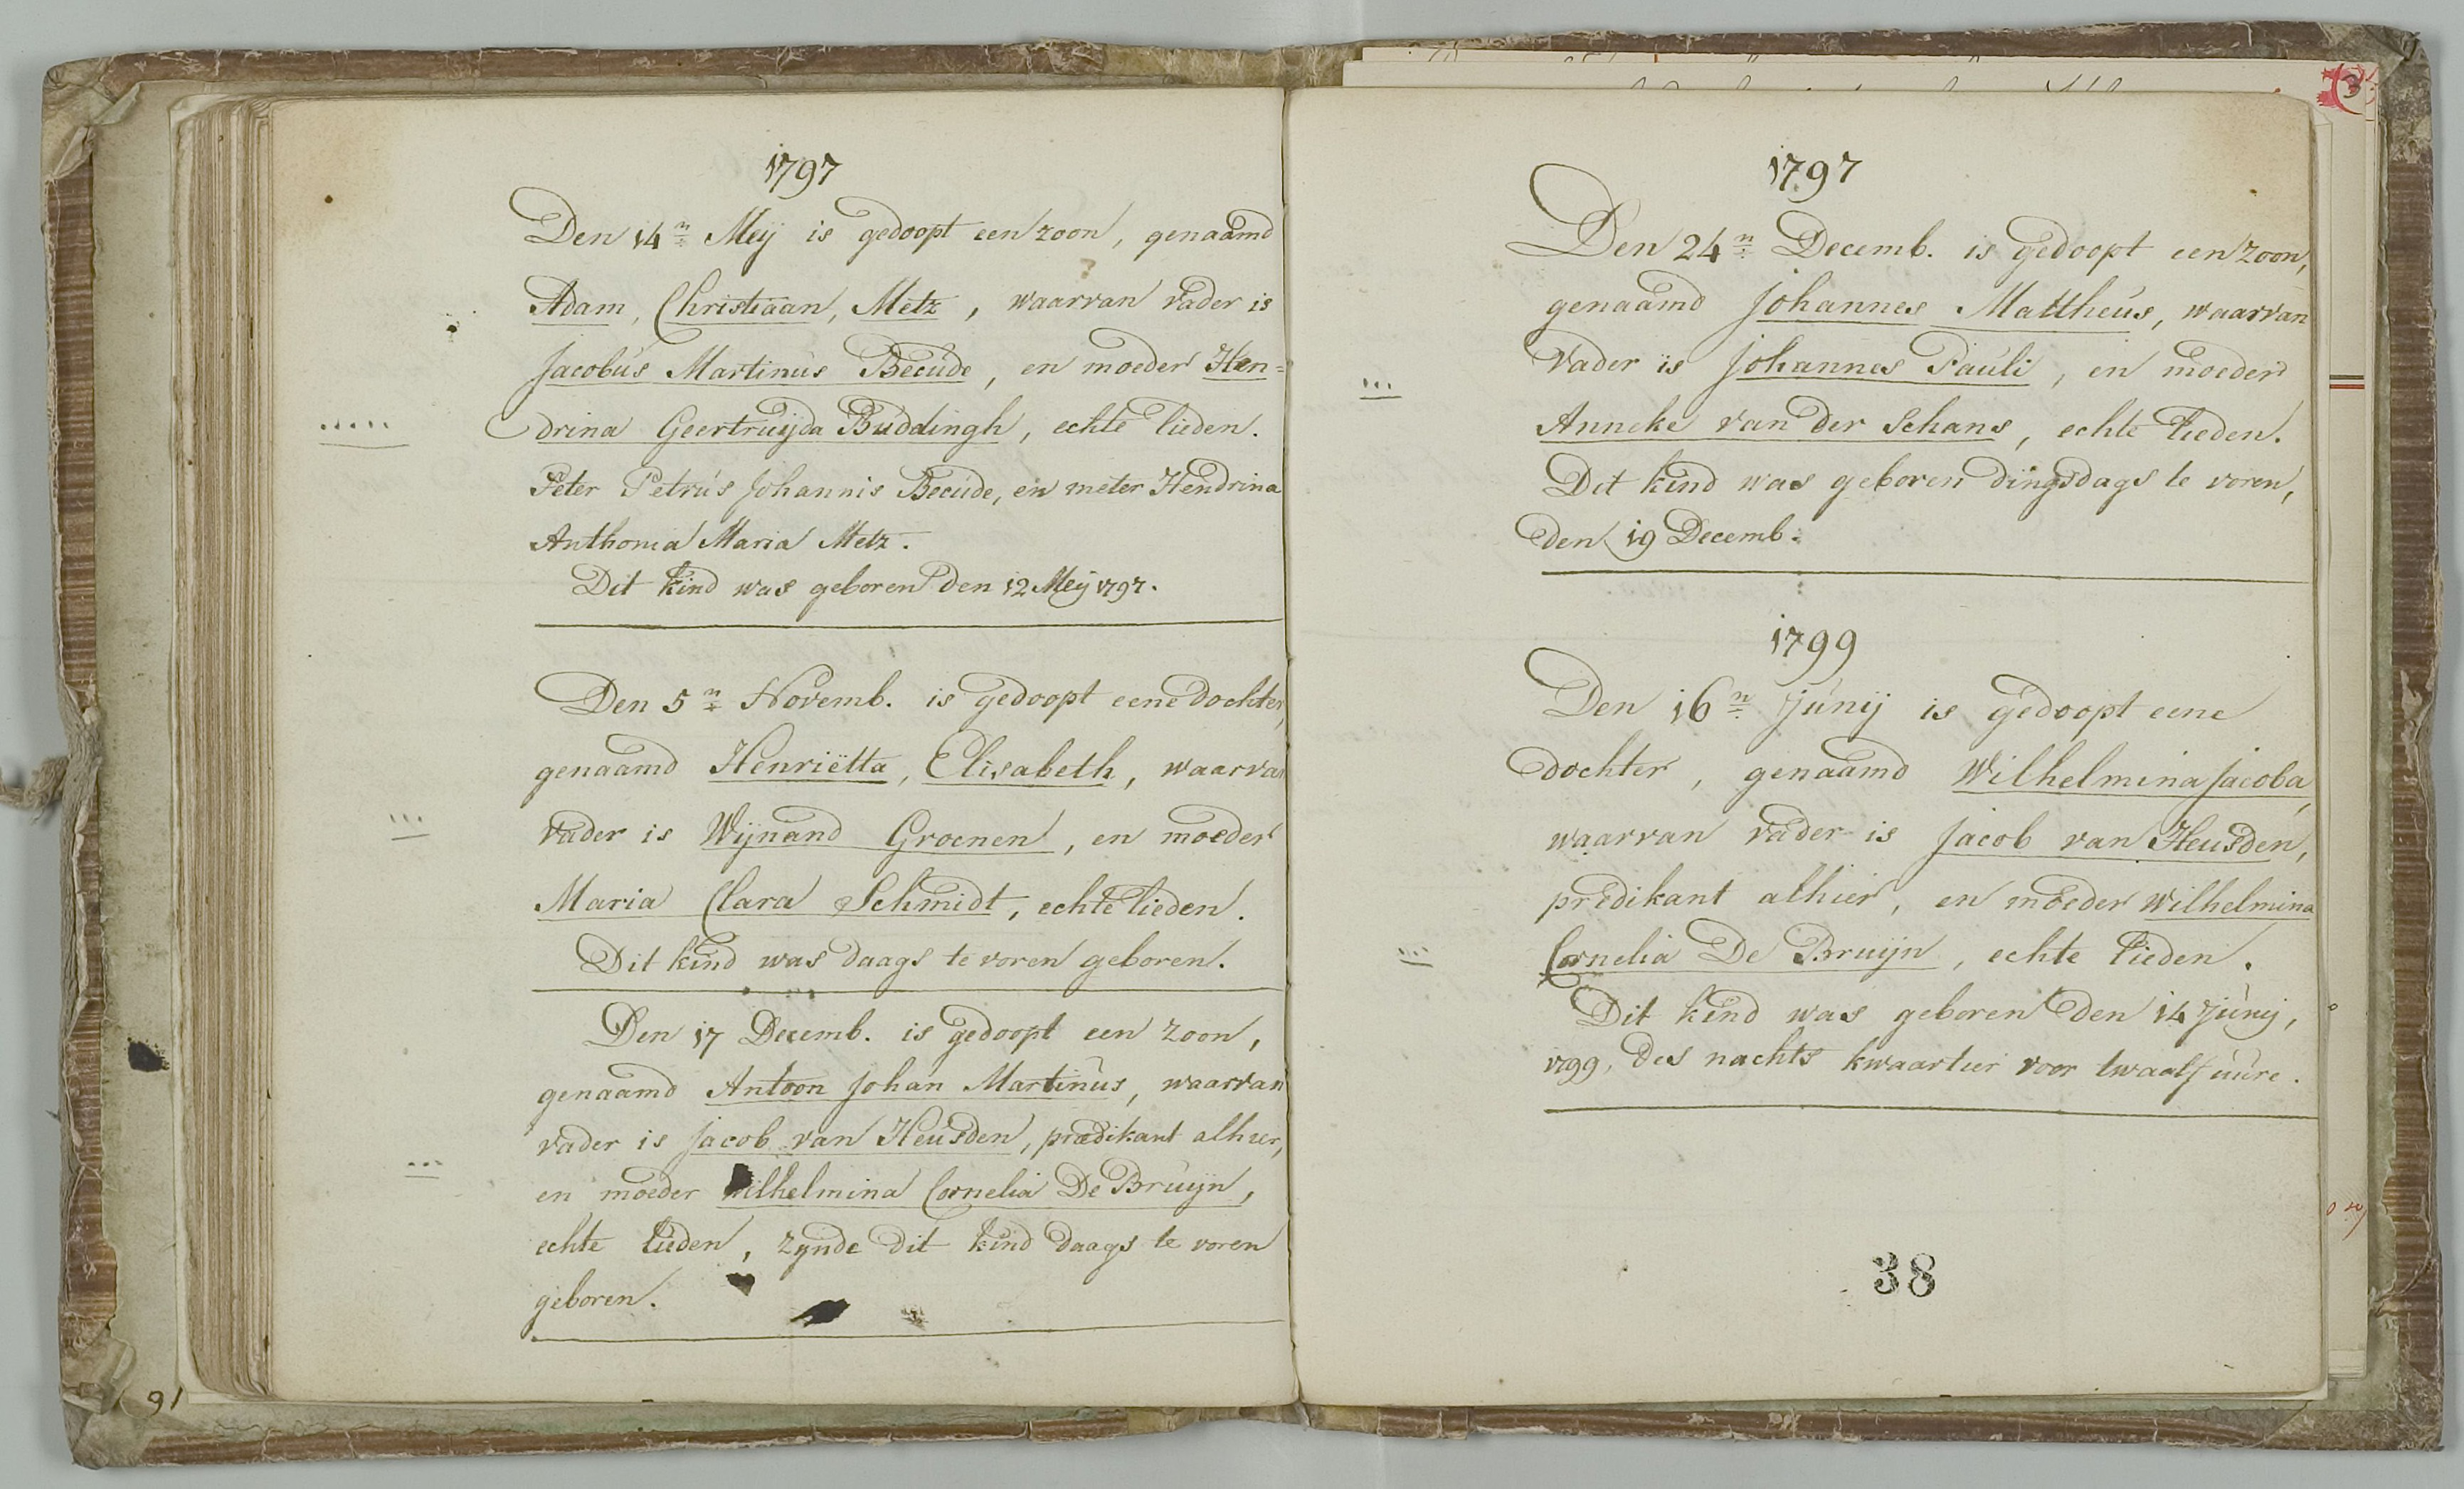 1797
Den 14n Meÿ is gedoopt een zoon, genaamd
Adam, Christiaan, Metz, waarvan vader is
Jacobús Martinús Becúde, en moeder Hen=
drina Geertruÿda Buddingh, echte lieden.
Peter Petrús Johannis Becúde, en meter Hendrina
Anthonia Maria Metz.
Dit kind was geboren den 12 Meÿ 1797.
Den 5n Novemb. is gedoopt eene dochter,
genaamd Henriëtta, Elisabeth, waarvan
vader is Wijnand Groenen, en moeder
Maria Clara Schmidt, echte lieden.
Dit kind was daags te voren geboren.
Den 17 Decemb. is gedoopt een zoon,
genaamd Antoon Johan Martinús, waarvan
vader is Jacob van Heúsden, prædikant alhier,
en moeder Wilhelmina Cornelia De Bruijn,
echte lieden, zynde dit kind daags te voren
geboren.
91
1797
Den 24n Decemb. is gedoopt een zoon,
genaamd Johannes Mattheús, waarvan
vader is Johannes Pauli, en moeder
Anneke van der Schans, echte lieden.
Dit kind was geboren dingsdags te voren,
den 19 Decemb.
1799
Den 16n Júnij is gedoopt eene
dochter, genaamd Wilhelmina Jacoba,
waarvan vader is Jacob van Heusden,
prædikant alhier, en moeder Wilhelmina
Cornelia De Bruijn, echte lieden.
Dit kind was geboren den 14 Júnij,
1799, des nachts kwaartier voor twaalf úúre.
38
3